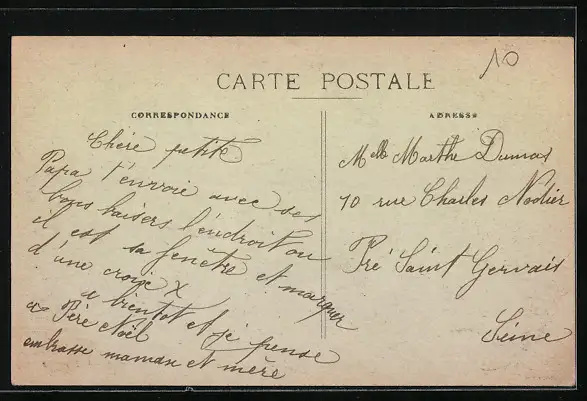 10
CARTE POSTALE
CORRESPONDANCE
ADRESSE
Chère petite
Papa t'envoie avec ses
bons baisers l'endroit ou
il est sa fenêtre et marquer
d'une croix X
a bientot et je pense
au Père Noël
embrasse maman et mère
Melle Marthe Dumas
10 rue Charles Nodier
Pré Saint Gervais
Seine